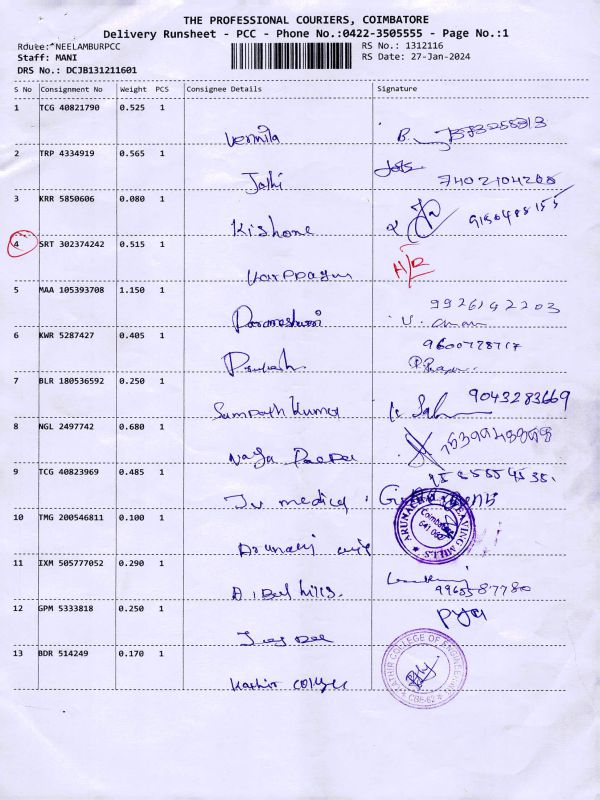 THE PROFESSIONAL COURIERS, COIMBATORE
Delivery Runsheet - PCC - Phone No.:0422-3505555 - Page No.:1
Route: NEELAMBURPCC RS No.: 1312116
Staff: MANI RS Date: 27-Jan-2024
DRS No.: DCJB131211601
S No Consignment No Weight PCS Consignee Details Signature
1 TCG 40821790 0.525 1
Vermila B.
2 TRP 4334919 0.565 1
Jothi 7402104268
3 KRR 5850606 0.080 1
Kishore 9150488155
4 SRT 302374242 0.515 1
Karppagam H/R
5 MAA 105393708 1.150 1
Parameshwari 9926142203
6 KWR 5287427 0.405 1
Prakash
7 BLR 180536592 0.250 1
Sampath Kumar 9043283669
8 NGL 2497742 0.680 1
Naga
9 TCG 40823969 0.485 1
medical
10 TMG 200546811 0.100 1
ARUNACHALA WEAVING MILLS
Coimbatore
11 IXM 505777052 0.290 1
9965587780
12 GPM 5333818 0.250 1
13 BDR 514249 0.170 1
Kathir college
KATHIR COLLEGE OF ENGINEERING
CBE-62